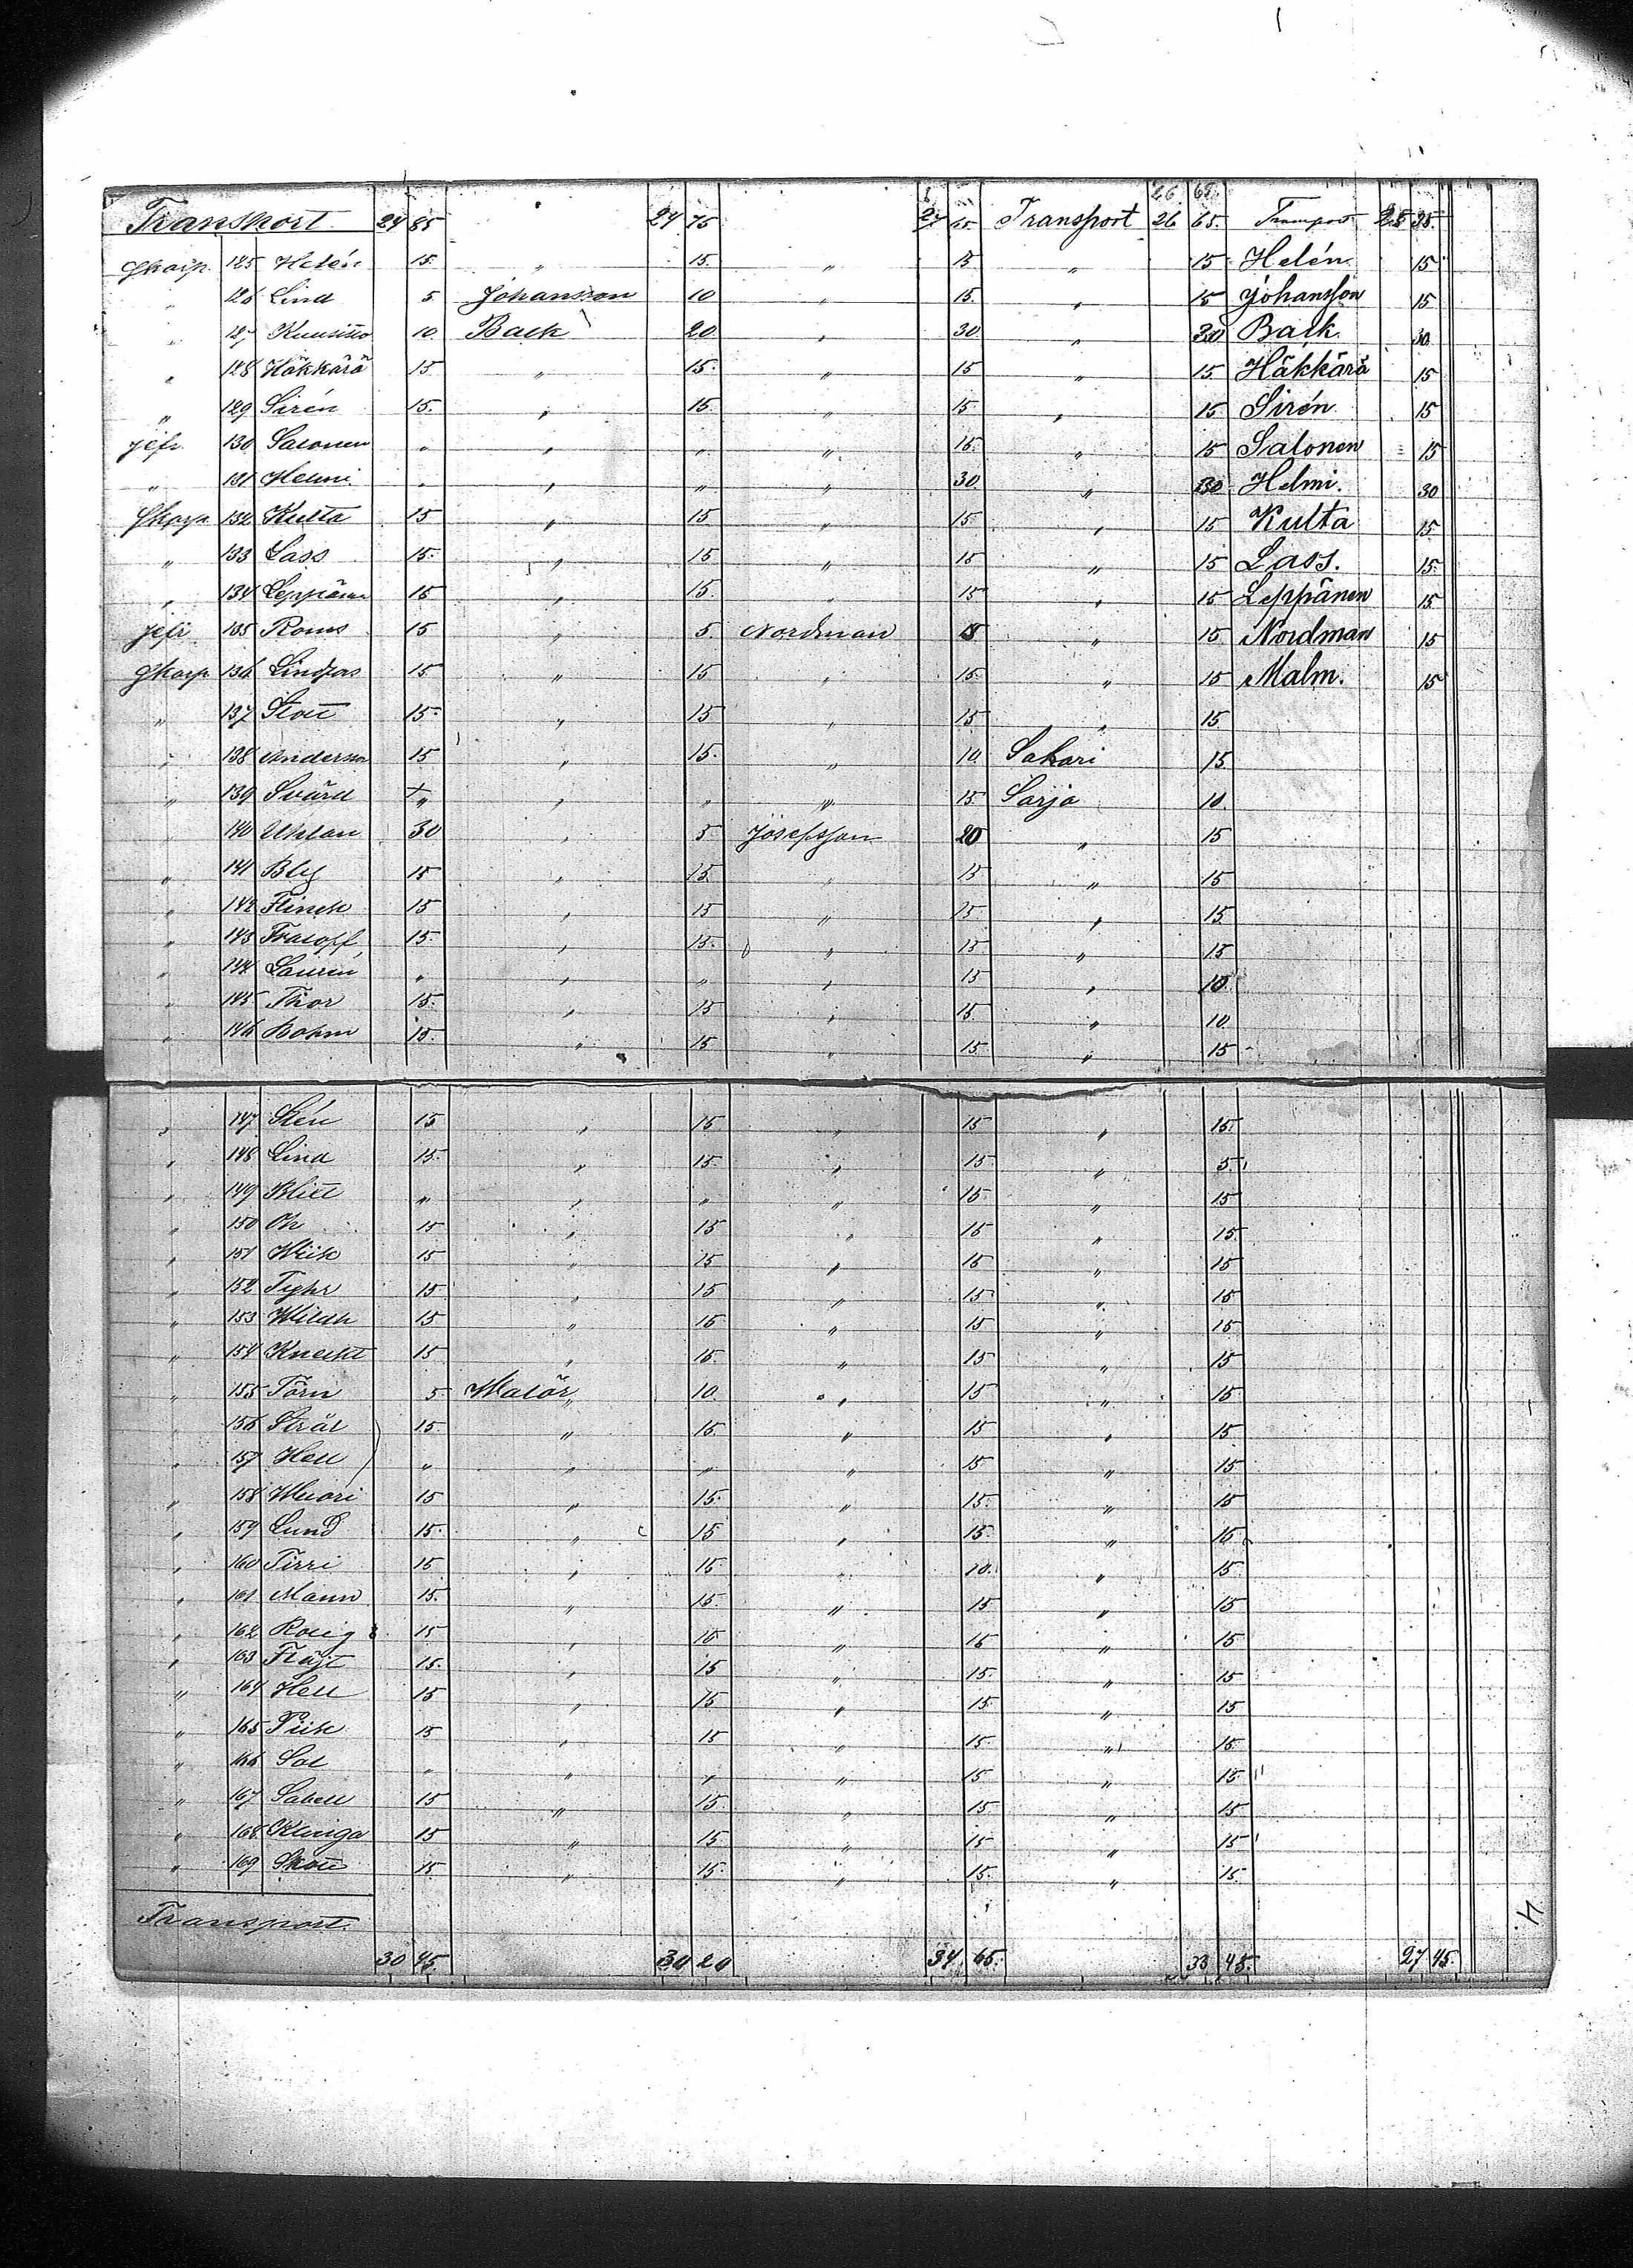 26 65.
Transport. 24 85 24 75 27 65. Transport 26 65. Transport 25 35.
Gkarp. 125 Helén 15. „ 15. „ 15 „ 15 Helén 15
„ 126 Lind 5 Johansson 10 „ 15. „ 15 Johansson 15
„ 127 Kuusisto 10 Back 20 „ 30 „ 30 Back 30
„ 128 Häkkärä 15 „ 15. „ 15 „ 15 Häkkärä 15
„ 129 Sirén 15. „ 15. „ 15 „ 15 Sirén 15
Jefr. 130 Salonen „ „ „ „ 15. „ 15 Salonen 15
„ 131 Helmi „ „ „ „ 30. „ 30 Helmi. 30
Gkarp. 132 Kulta 15 „ 15 „ 15 „ 15 Kulta 15
„ 133 Lass 15. „ 15 „ 15 „ 15 Lass. 15.
„ 134 Leppänen 15 „ 15. „ 15 „ 15 Leppänen 15
Jefr 135 Roms 15 „ 5 Nordman 15 „ 15 Nordman 15
Gkarp. 136 Lindfors 15 „ 15 „ 15. „ 15 Malm. 15
„ 137 Stått 15. „ 15 „ 15 „ 15
„ 138 Andersson 15 „ 15. „ 10 Sakari 15
„ 139 Svärd „ „ „ „ 15 Sarja 10.
„ 140 Uhlan 30 „ 5 Josefsson 20 „ 15
„ 141 Bly 15 „ 15. „ 15 „ 15
„ 142 Flinck 15 „ 15 „ 15 „ 15
„ 143 15. „ 15. „ 15 „ 15
„ 144 Laurén „ „ „ „ 15 „ 10.
„ 145 Thor 15. „ 15 „ 15. „ 10
„ 146 Bohm 15. „ 15 „ 15 „ 15
„ 147 Stén 15 „ 15 „ 15 „ 15.
„ 148 Lind 15. „ 15. „ 15 „ 5.
„ 149 Blixt „ „ „ „ 15 „ 15
„ 150 15 „ 15 „ 15 „ 15.
„ 151 Wiik 15 „ 15 „ 15 „ 15
„ 152 Tyhr 15 „ 15 „ 15 „ 15
„ 153 15 „ 15 „ 15 „ 15
„ 154 Knecht 15 „ 15. „ 15 „ 15
„ 155 Törn 5 Malör „ 10. „ 15 „ 15
„ 156 Strål 15. „ 15. „ 15 „ 15
„ 157 Hell „ „ „ „ 15 „ 15
„ 158 Wuori 15 „ 15. „ 15. „ 15
„ 159 Lund 15. „ 15 „ 15. „ 15
„ 160 Tirri 15 „ 15 „ 10. „ 15
„ 161 Mann 15. „ 15. „ 15 „ 15
„ 162 15 „ 15 „ 15 „ 15
„ 163 15. „ 15 „ 15. „ 15
„ 164 Hell 15 „ 15 „ 15. „ 15
„ 165 Piik 15 „ 15 „ 15. „ 15
„ 166 Sal „ „ „ „ 15 „ 15
„ 167 Sabell 15 „ 15 „ 15 „ 15
„ 168 Klinga 15 „ 15 „ 15 „ 15
„ 169 Skött 15 „ 15. „ 15. „ 15
Transport.
30 45. 30 20 34 65. 33 45. 27 45.